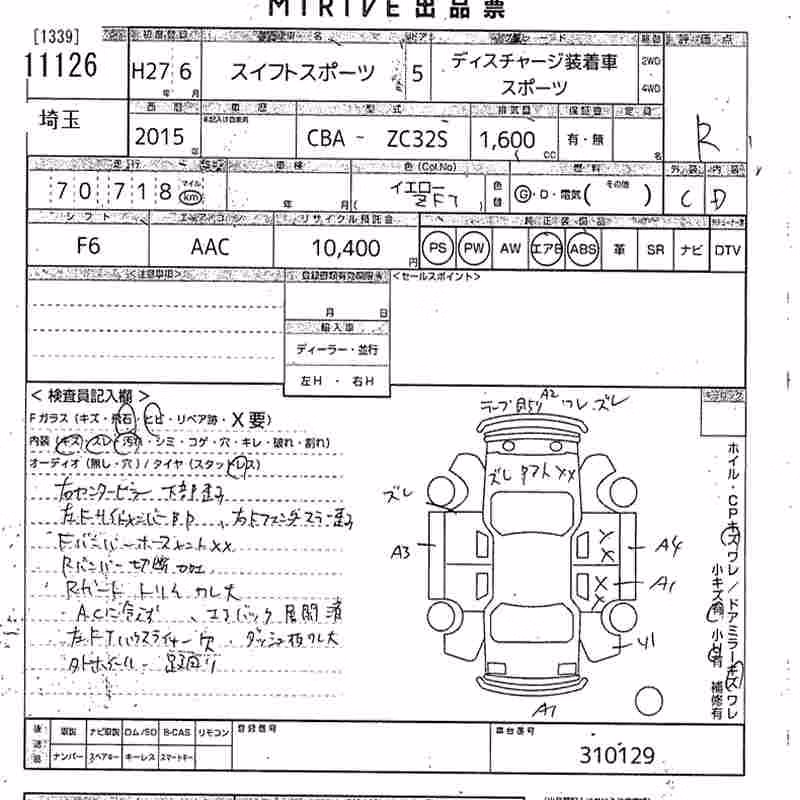 MIRIVE 出品票
[1339] 初度登録 車名 ドア グレード 駆動 評価点
11126 H27 6 年 月 スイフトスポーツ 5 ディスチャージ装着車 スポーツ 2WD 4WD R
埼玉 西暦 車歴 型式 排気量 保証書 定員
2015 年 CBA - ZC32S 1,600 cc 有・無 名
走行 車検 色(Col.No) 燃料 外装 内装
70718 マイル km 年 月 イエロー ZF7 色替 G・D・電気( その他 ) C D
シフト エアコン リサイクル預託金 純正装備品
F6 AAC 10,400 円 PS PW AW エアB ABS 革 SR ナビ DTV
<注意事項> 登録書類有効期限 <セールスポイント>
月 日
輸入車
ディーラー・並行
左H ・ 右H
< 検査員記入欄 >
Fガラス (キズ・飛石・ヒビ・リペア跡・X要)
内装 (キズ・スレ・汚れ・シミ・コゲ・穴・キレ・破れ・割れ)
オーディオ (無し・穴) / タイヤ (スタッドレス)
右センターピラー 下部歪
Fバンパー ホースメント XX
Rバンパー 切断
Rガード トリム ワレ大
ACに冷えず 、エアバック 展開済
ダッシュ板ワレ大
A2 ワレ ズレ
ズレ XX
ズレ
A3
A4
A1
U1
A1
ホイル・CPキズワレ/ドアミラーキズワレ
小キズ有 小凹有 補修有
後送品 取説 ナビ取説 ロム/SD B-CAS リモコン 登録番号 車台番号
ナンバー スペアキー キーレス スマートキー 310129